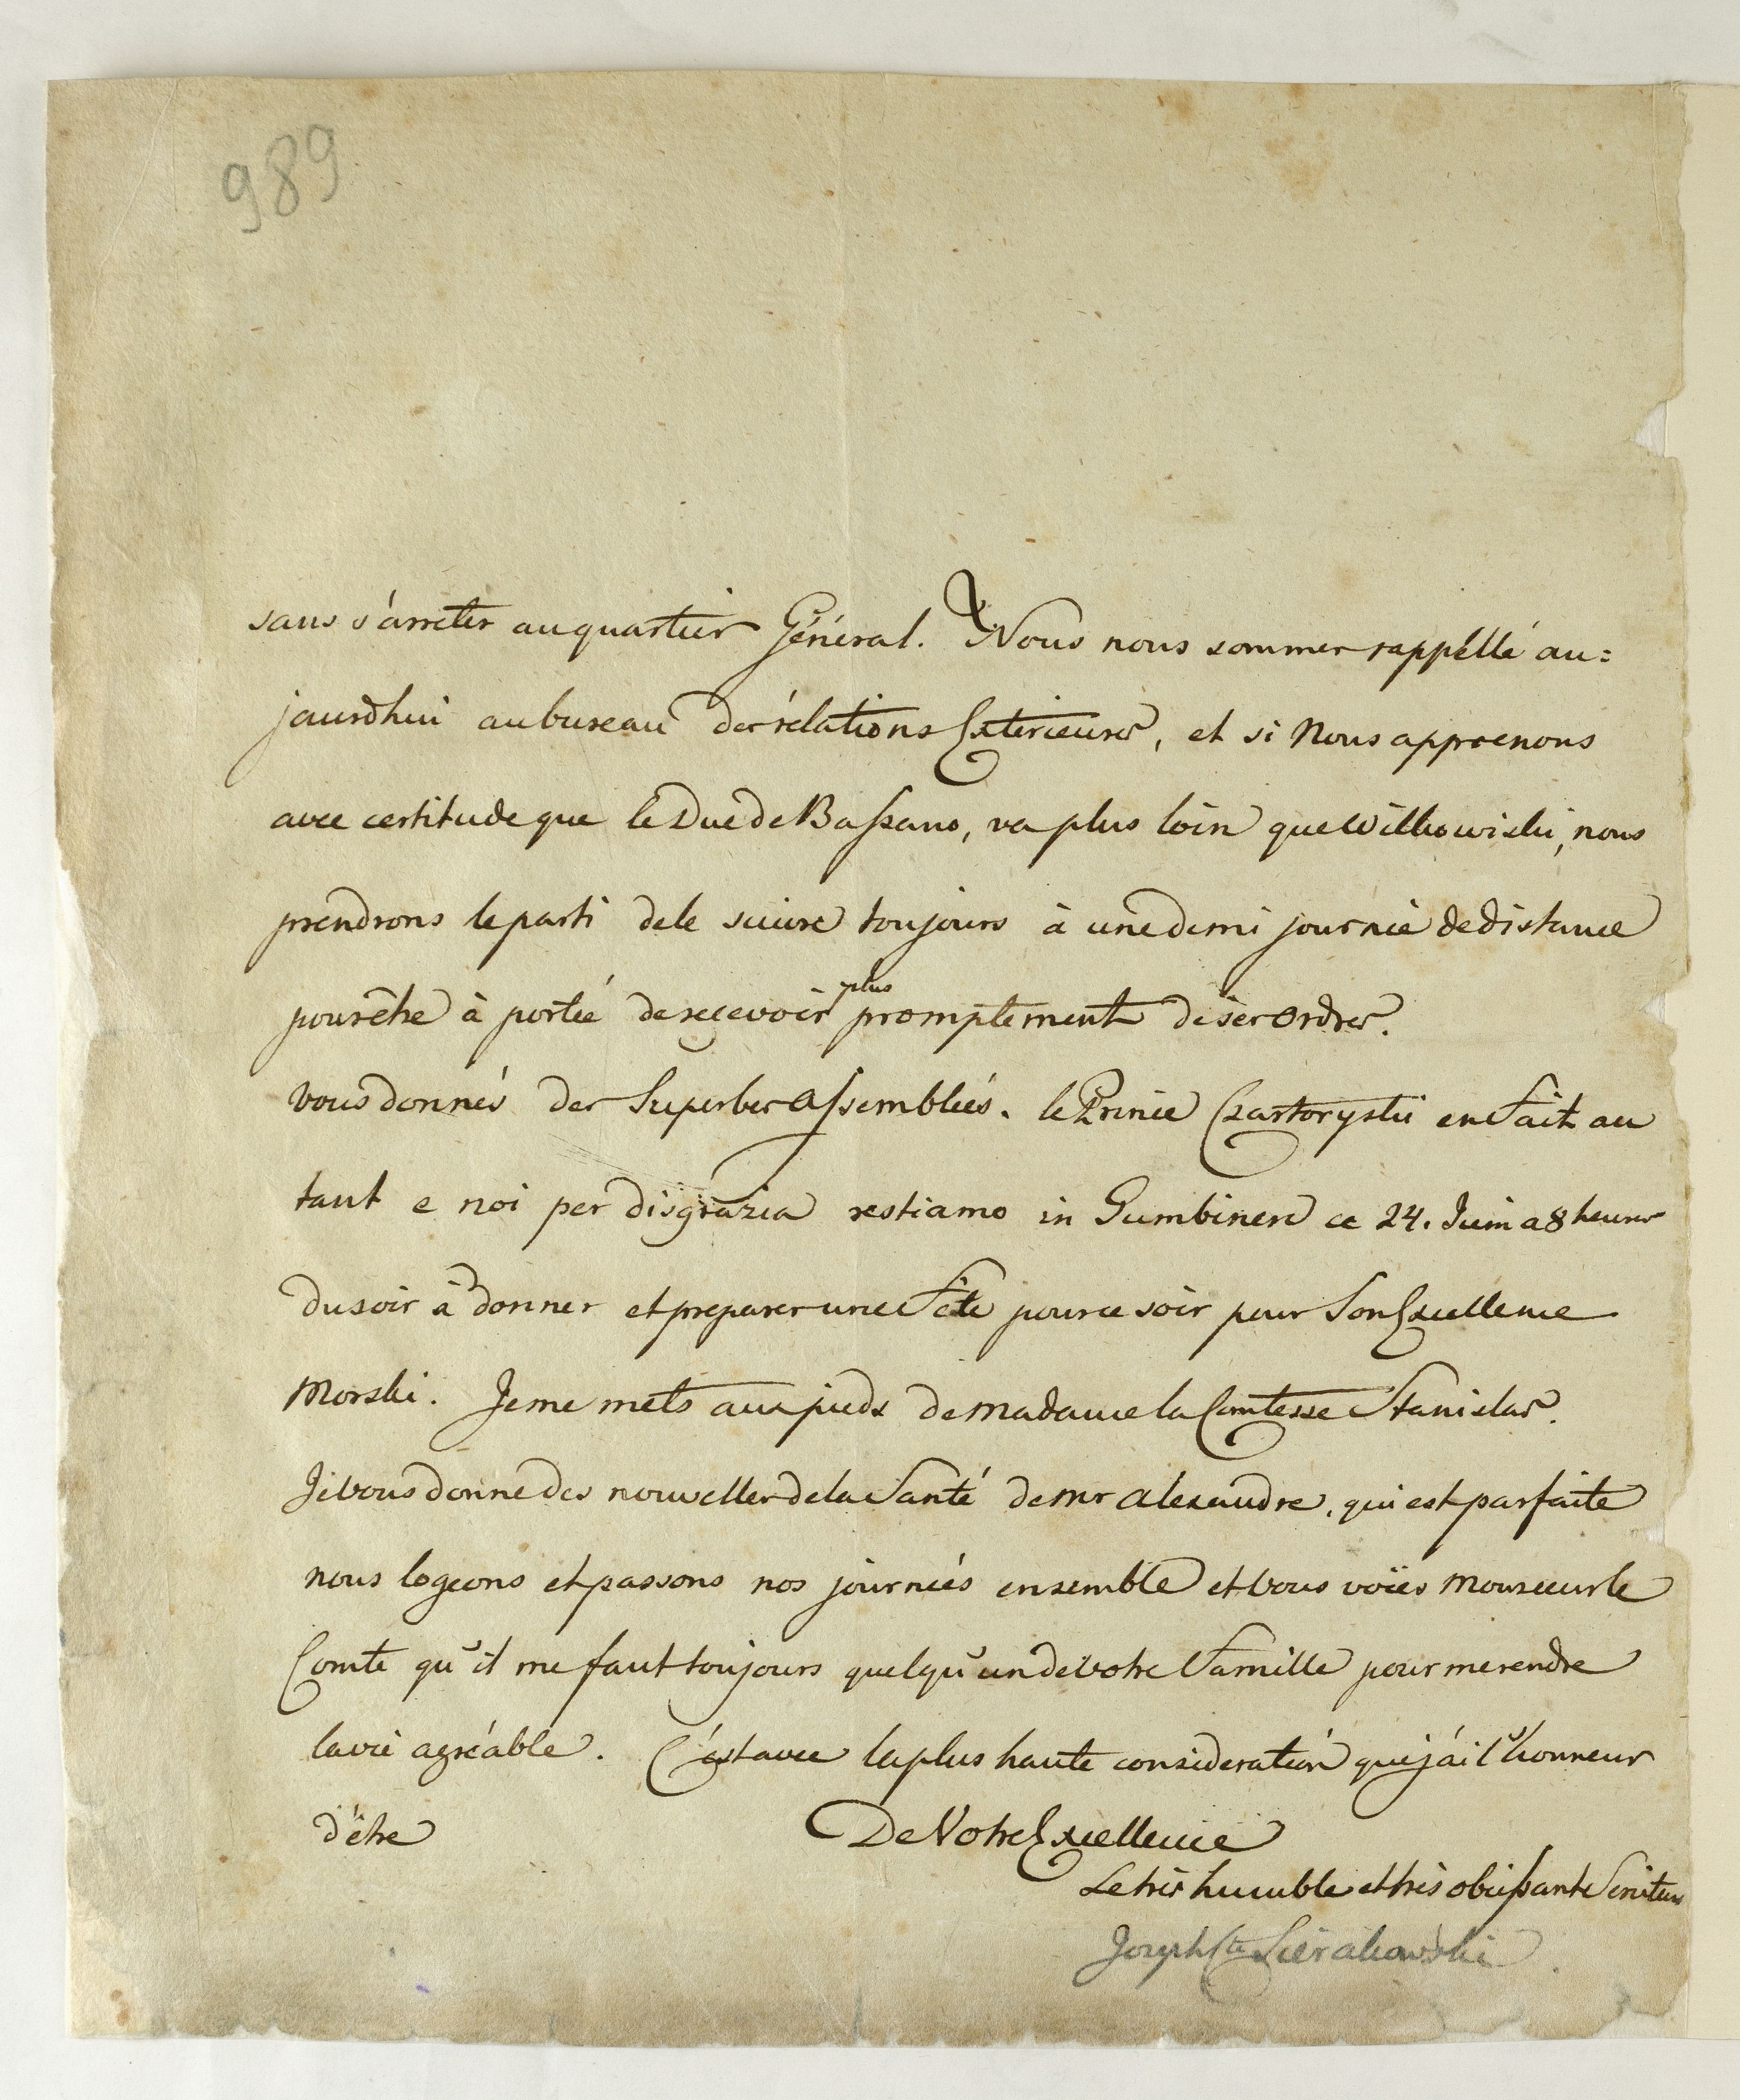 989
sans s'arreter au quartier Général. Nous nous sommes rappéllé au=
jourdhui au bureau des rélations Exterieures, et si Nous apprenons
avec certitude que le Duc de Bassano, va plus loin que Wilkowiski, nous
prendrons le parti de le suivre toujours à une demi journée de distance
pour être à portée de reçevoir plus promptement de ses ordres.
vous donnés des Superbes assemblées. le Prince Czartoryski en fait au
tant e noi per disgrazia restiamo in Gumbinen ce 24. Juin a 8 heures
du soir à donner et preparer une fête pour ce soir pour Son Excellence
Morski. Je me mets aux pieds de madame la Comtesse Stanislas.
Je vous donne des nouvelles de la Santé de mr alexandre, qui est parfaite
nous logeons et passons nos journées ensemble et vous voïés monsieur le
Comte qu'il me faut toujours quelqu'un de votre famille pour me rendre
la vie agréable. C'est avec la plus haute consideration que j'ai l'honneur
d'être De Votre Excellence
Le très humble et très obeissant Serviteur
Joseph Cte Sierakowski